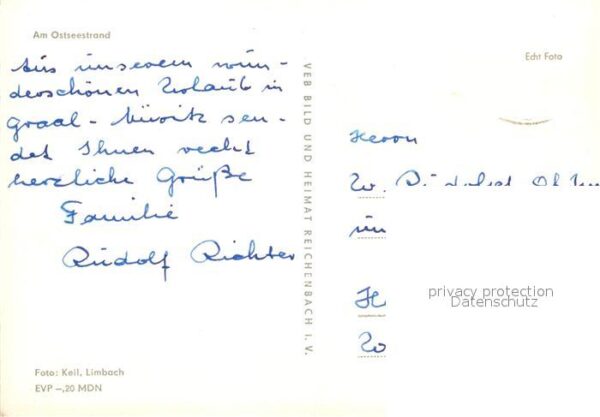 Am Ostseestrand
Aus unserem wun-
derschönen Urlaub in
Graal-Müritz sen-
det Ihnen recht
herzliche Grüße
Familie
Rudolf Richter
Foto: Keil, Limbach
EVP –,20 MDN
VEB BILD UND HEIMAT REICHENBACH I. V.
Echt Foto
Herrn
privacy protection
Datenschutz